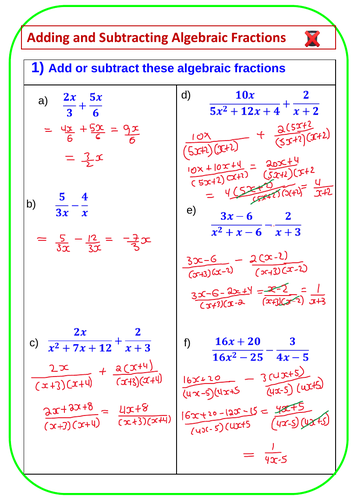 Adding and Subtracting Algebraic Fractions
1) Add or subtract these algebraic fractions
a) 2x/3 + 5x/6
= 4x/6 + 5x/6 = 9x/6
= 3/2 x
b) 5/3x − 4/x
= 5/3x − 12/3x = −7/3 x
c) 2x/(x² + 7x + 12) + 2/(x + 3)
2x/((x+3)(x+4)) + 2(x+4)/((x+3)(x+4))
(2x+2x+8)/((x+3)(x+4)) = (4x+8)/((x+3)(x+4))
d) 10x/(5x² + 12x + 4) + 2/(x + 2)
10x/((5x+2)(x+2)) + 2(5x+2)/((5x+2)(x+2))
(10x+10x+4)/((5x+2)(x+2)) = (20x+4)/((5x+2)(x+2))
= 4/(x+2)
e) (3x − 6)/(x² + x − 6) − 2/(x + 3)
(3x−6)/((x+3)(x−2)) − 2(x−2)/((x+3)(x−2))
(3x−6−2x+4)/((x+3)(x−2) = (x−2)/((x+3)(x−2)) = 1/(x+3)
f) (16x + 20)/(16x² − 25) − 3/(4x − 5)
(16x+20)/((4x−5)(4x+5) − 3(4x+5)/((4x−5)(4x+5))
(16x+20−12x−15)/((4x−5)(4x+5) = (4x+5)/((4x−5)(4x+5))
= 1/(4x−5)